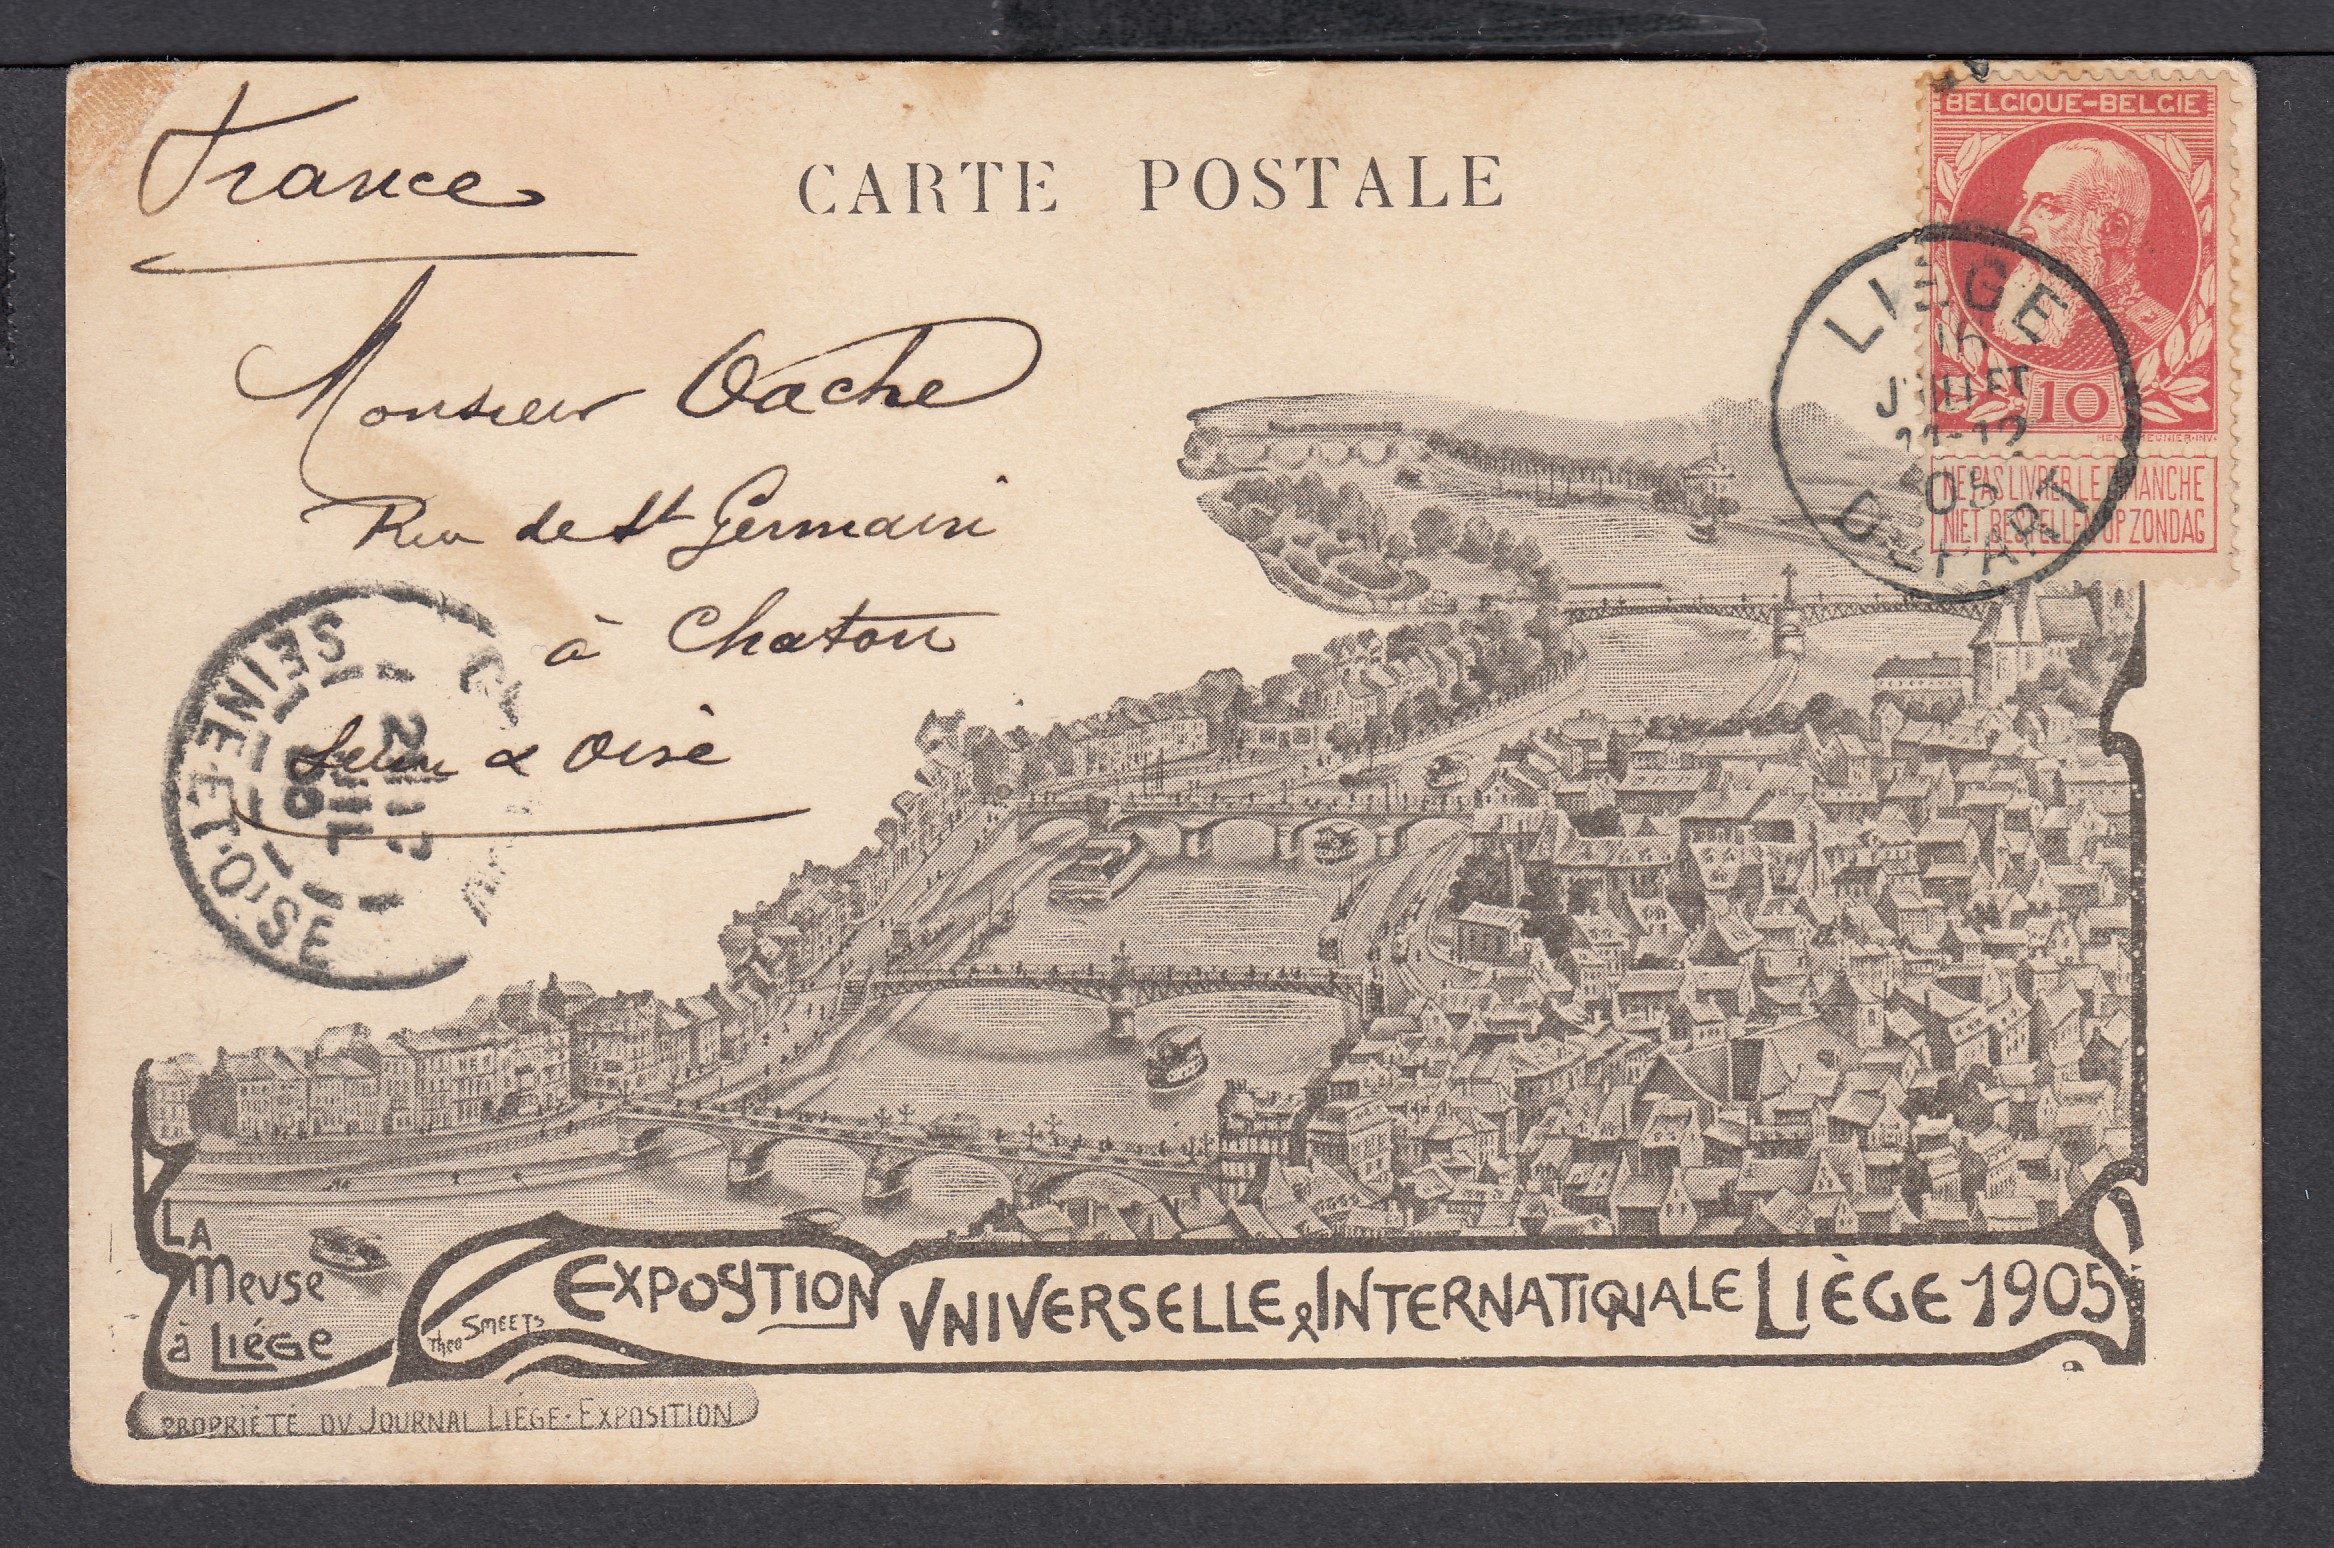 CARTE POSTALE
BELGIQUE-BELGIE
10
NE PAS LIVRER LE DIMANCHE
NIET BESTELLEN OP ZONDAG
LIEGE
16
JUILLET
11-12
05
DEPART
France
Monsieur Vache
Rue de St Germain
à Chatou
Seine & Oise
SEINE-ET-OISE
JUIL
05
LA
MEUSE
à LIÉGE
Théo SMEETS
EXPOSITION VNIVERSELLE & INTERNATIONALE LIÈGE 1905
PROPRIÉTÉ DV JOURNAL LIÉGE-EXPOSITION